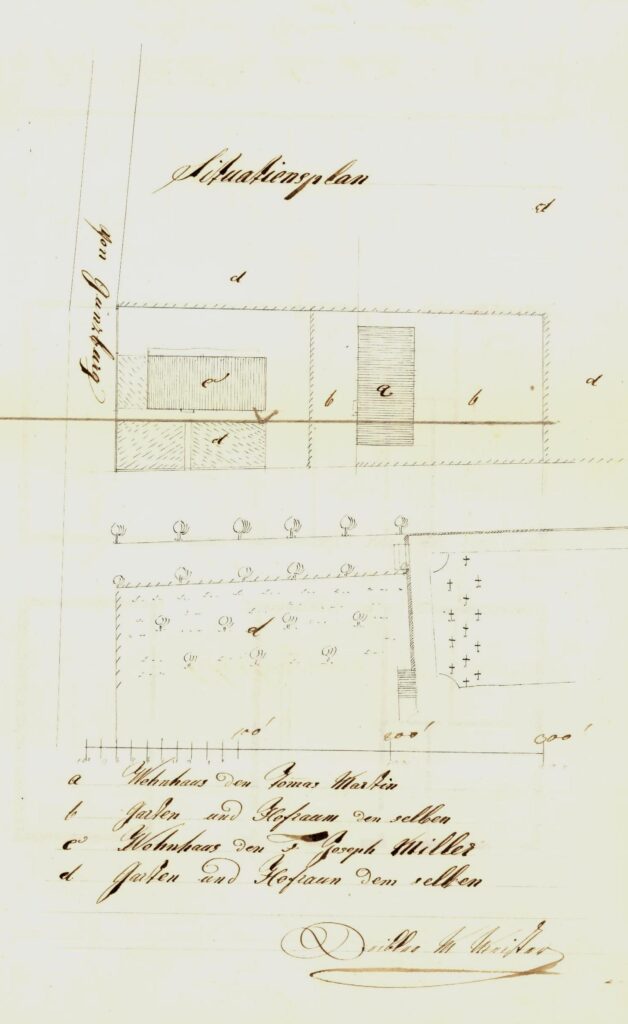 Situationsplan
d
d
von Günzburg
c
d
b
a
b
d
d
100'
200'
300'
a Wohnhaus den Tomas Martin
b Garten und Hofraum den selben
c Wohnhaus den Joseph Miller
d Garten und Hofraun dem selben